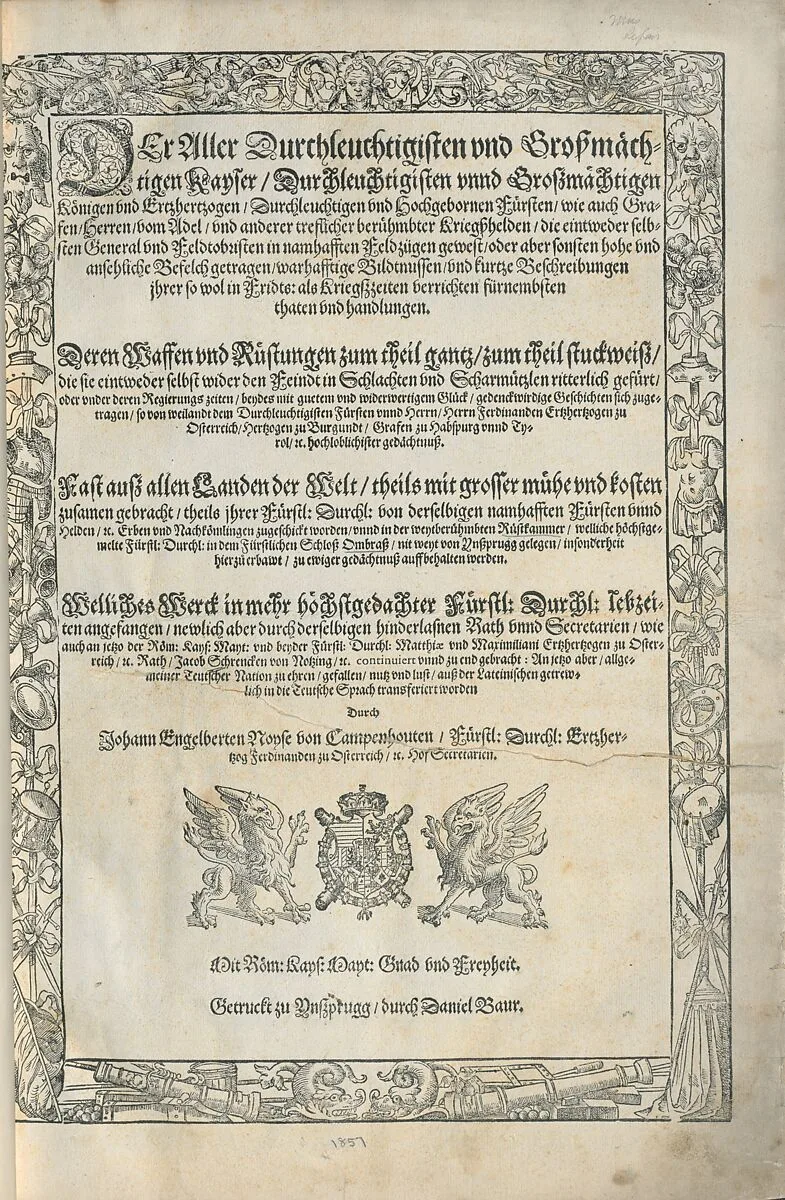 DEr Aller Durchleuchtigisten vnd Großmäch-
tigen Kayser / Durchleuchtigisten vnnd Großmächtigen
Königen vnd Ertzhertzogen / Durchleuchtigen vnd Hochgebornen Fürsten / wie auch Gra-
fen / Herren / vom Adel / vnd anderer treflicher berühmbter Kriegßhelden / die eintweder selb-
sten General vnd Feldtobristen in namhafften Feldzügen gewest / oder aber sonsten hohe vnd
ansehliche Befelch getragen / warhafftige Bildtnussen / vnd kurtze Beschreibungen
jhrer so wol in Fridts: als Kriegßzeiten verrichten fürnembsten
thaten vnd handlungen.
Deren Waffen vnd Rüstungen zum theil gantz / zum theil stuckweiß /
die sie eintweder selbst wider den Feindt in Schlachten vnd Scharmützlen ritterlich gefürt /
oder vnder deren Regierungs zeiten / beydes mit guetem vnd widerwertigem Glück / gedenckwirdige Geschichten sich zuge-
tragen / so von weilandt dem Durchleuchtigisten Fürsten vnnd Herrn / Herrn Ferdinanden Ertzhertzogen zu
Osterreich / Hertzogen zu Burgundt / Grafen zu Habspurg vnnd Ty-
rol / ꝛc. hochloblichister gedächtnuß.
Fast auß allen Landen der Welt / theils mit grosser mühe vnd kosten
zusamen gebracht / theils jhrer Fürstl: Durchl: von derselbigen namhafften Fürsten vnnd
Helden / ꝛc. Erben vnd Nachkömlingen zugeschickt worden / vnnd in der weytberühmbten Rüstkammer / welliche höchstge-
melte Fürstl: Durchl: in dem Fürstlichen Schloß Ombraß / nit weyt von Ynßprugg gelegen / insonderheit
hierzů erbawt / zu ewiger gedächtnuß auffbehalten werden.
Welliches Werck in mehr höchstgedachter Fürstl: Durchl: lebzei-
ten angefangen / newlich aber durch derselbigen hinderlasnen Rath vnnd Secretarien / wie
auch an jetzo der Röm: Kays: Mayt: vnd beyder Fürstl: Durchl: Matthiæ vnd Maximiliani Ertzhertzogen zu Oster-
reich / ꝛc. Rath / Jacob Schrencken von Notzing / ꝛc. continuiert vnnd zu end gebracht: An jetzo aber / allge-
meiner Teutscher Nation zu ehren / gefallen / nutz vnd lust / auß der Lateinischen getrew-
lich in die Teutsche Sprach transferiert worden
Durch
Johann Engelberten Noyse von Campenhouten / Fürstl: Durchl: Ertzher-
tzog Ferdinanden zu Osterreich / ꝛc. Hof Secretarien.
Mit Röm: Kays: Mayt: Gnad vnd Freyheit.
Getruckt zu Ynßprugg / durch Daniel Baur.
1857